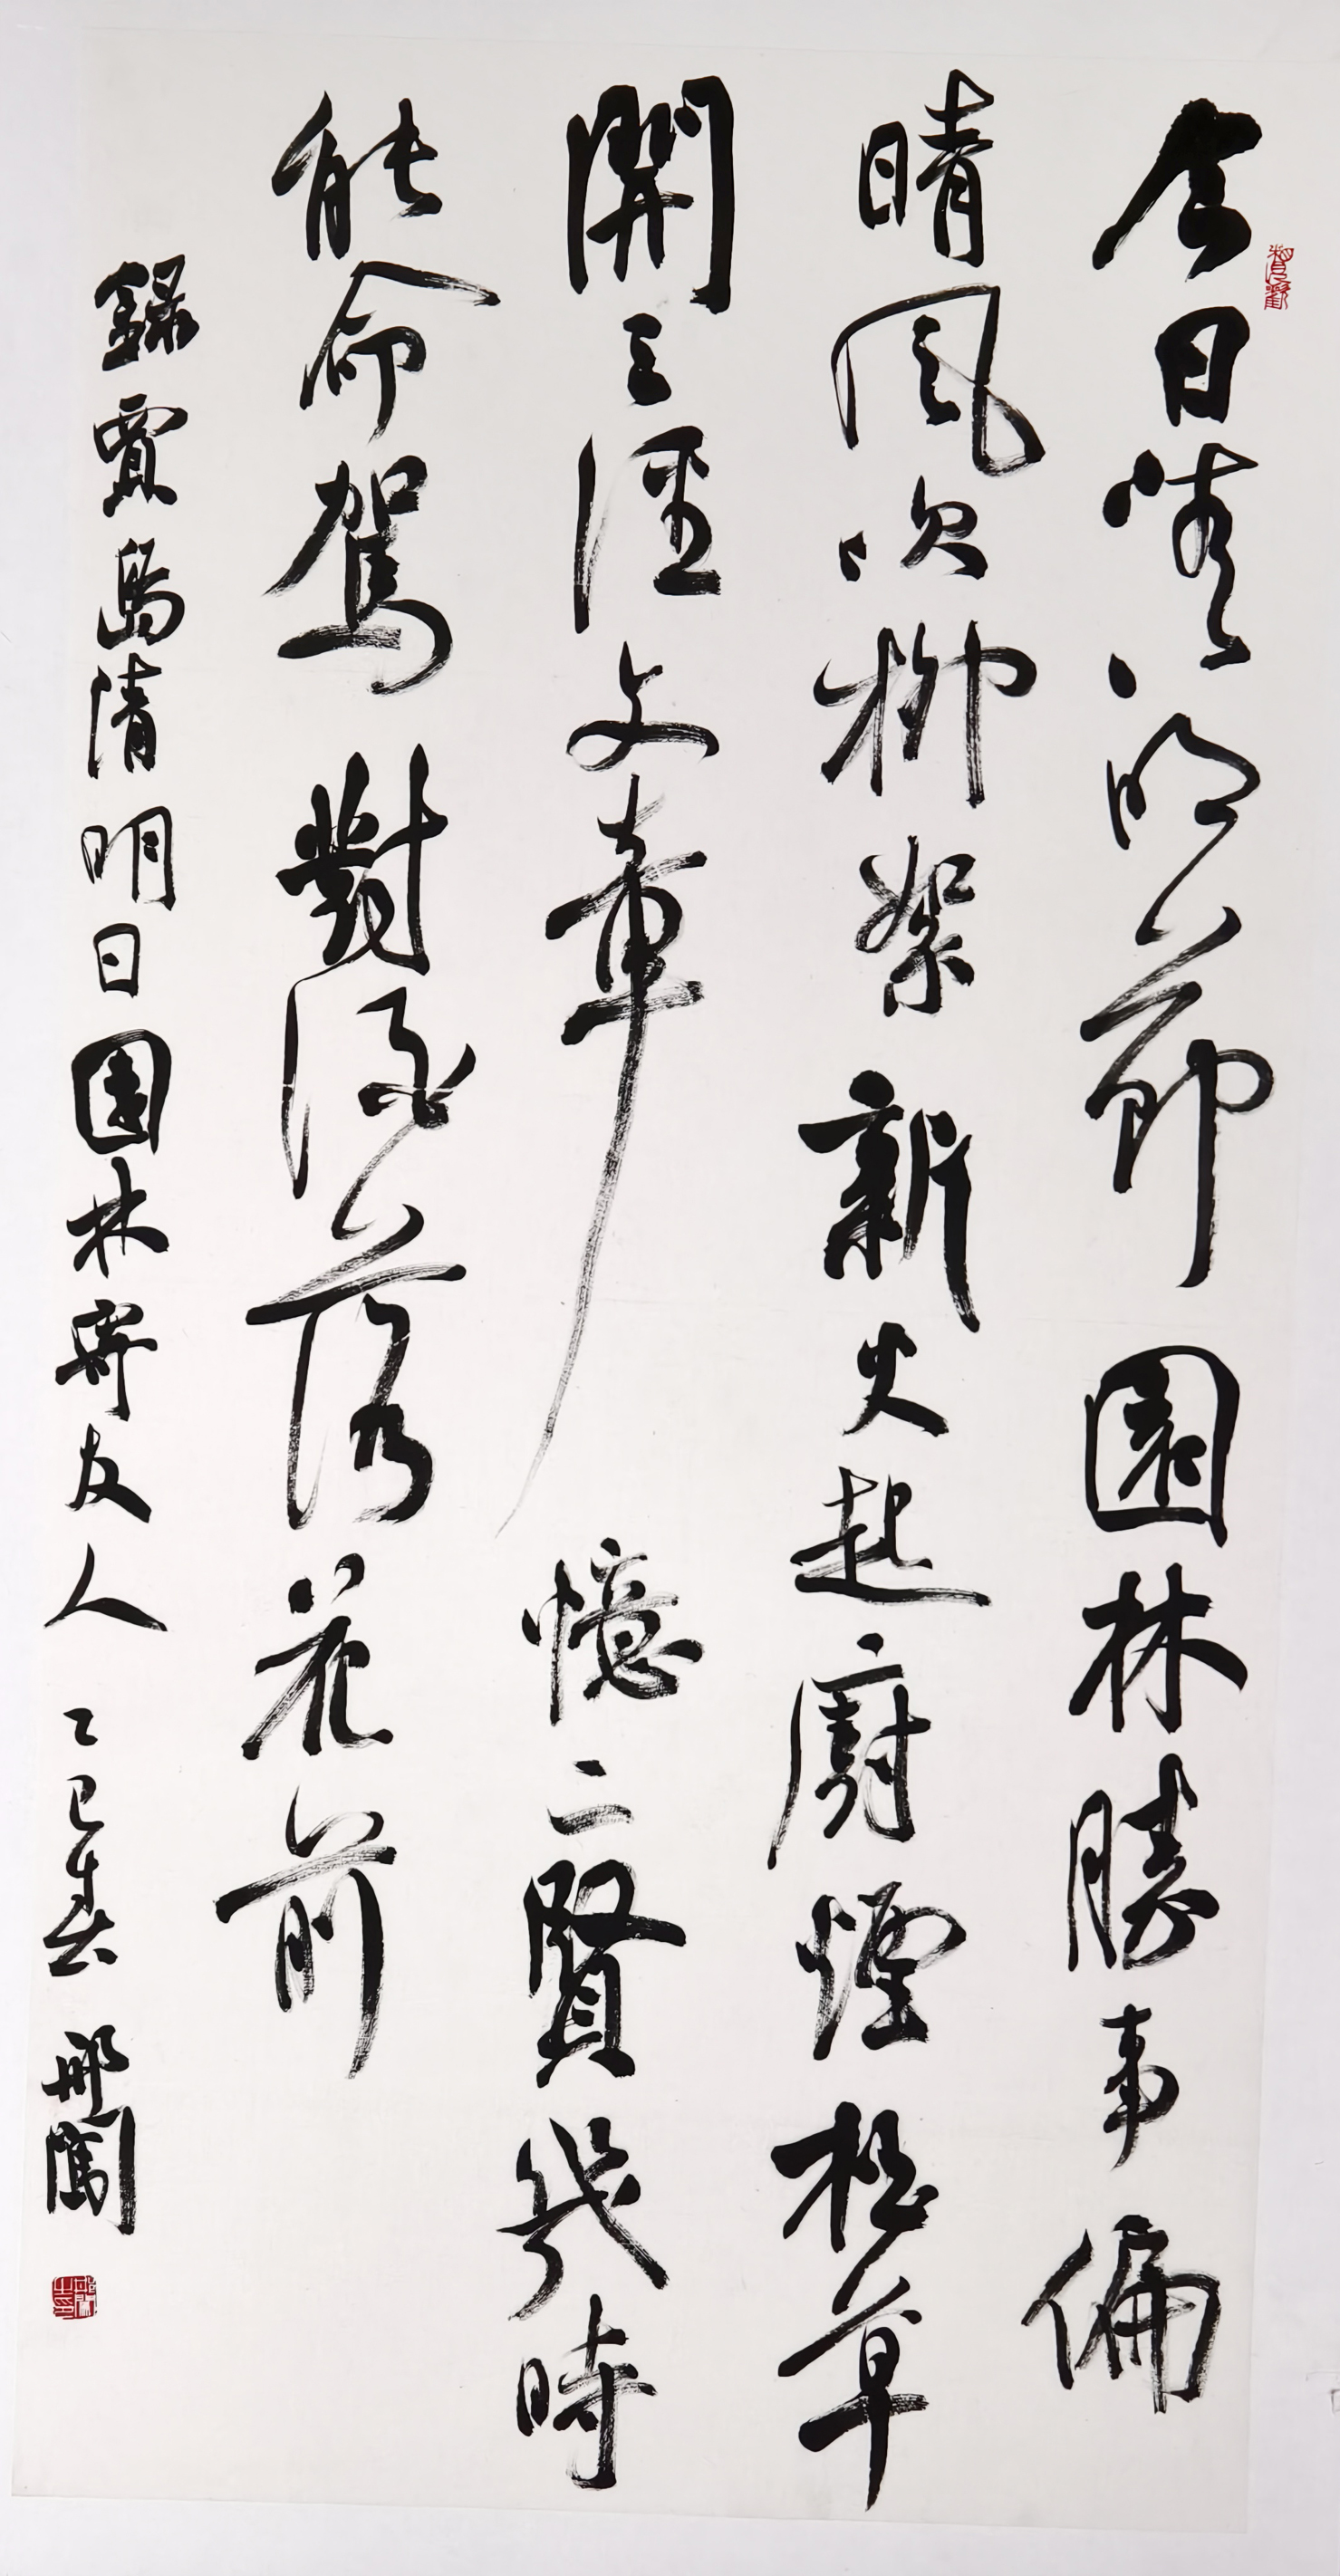 今日清明節園林勝事偏
晴風吹柳絮新火起廚煙杜草
開三徑文章憶二賢幾時
能命駕對酒落花前
錄賈島清明日園林寄友人 乙巳春 邢闖